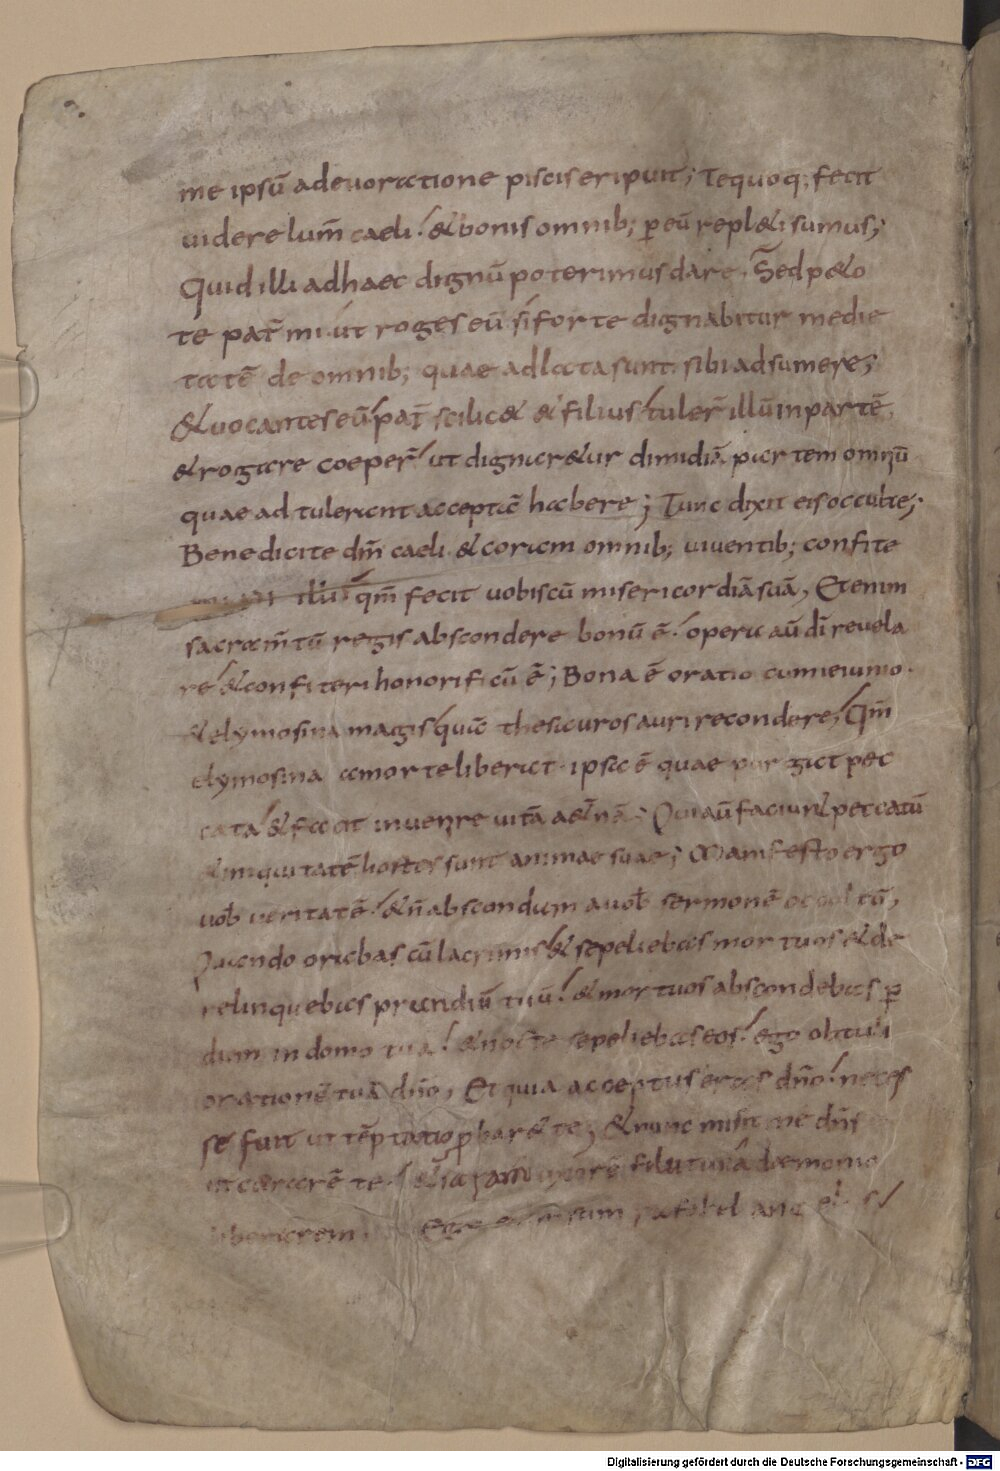 me ipsū adeuoratione piscis eripuit; Te quoq; fecit
uidere lum̄ caeli. & bonis omnib; p eū repl&i sumus;
Quid illi ad haec dignū poterimus dare. Sed p&o
te pat̄ mi. ut roges eū si forte dignabitur medie
tatē de omnib; quae adlata sunt. sibi adsumere;
& uocantes eū pat̄ scilic& & filius tuler̄ illū in partē.
& rogare coeper̄ ut dignar&ur dimidiā partem omniū
quae adtulerant acceptā habere; Tunc dixit eis occulte;
Benedicite dm̄ caeli. & coram omnib; uiuentib; confite
illi qm̄ fecit uobiscū misericordiā suā, Etenim
sacram̄tū regis abscondere bonū ē. opera aū dī reuela
re & confiteri honorificū ē; Bona ē oratio cum ieiunio.
& elymosina magis quā thesauros auri recondere, Qm̄
elymosina a morte liberat. ipsa ē quae purgat pec
cata & facit inuenire uitā aet̄nā; Qui aū faciun& peccatū
& iniquitatē hostes sunt animae suae; Manifesto ergo
uob̄ ueritatē. & n̄ abscondam a uob̄ sermonē occultū,
Quando orabas cū lacrimis & sepeliebas mortuos & de
relinquebas prandiū tuū. & mortuos abscondebas p
diem in domo tua. & nocte sepeliebas eos. ego obtuli
orationē tuā dn̄o, Et quia acceptus eras dn̄o. neces
se fuit ut tēptatio pbar& te; & nunc misit me dn̄s
ut curarē te. & uxorē filii tui a daemonio
liberarem Ego sum rafahel
Digitalisierung gefördert durch die Deutsche Forschungsgemeinschaft - DFG